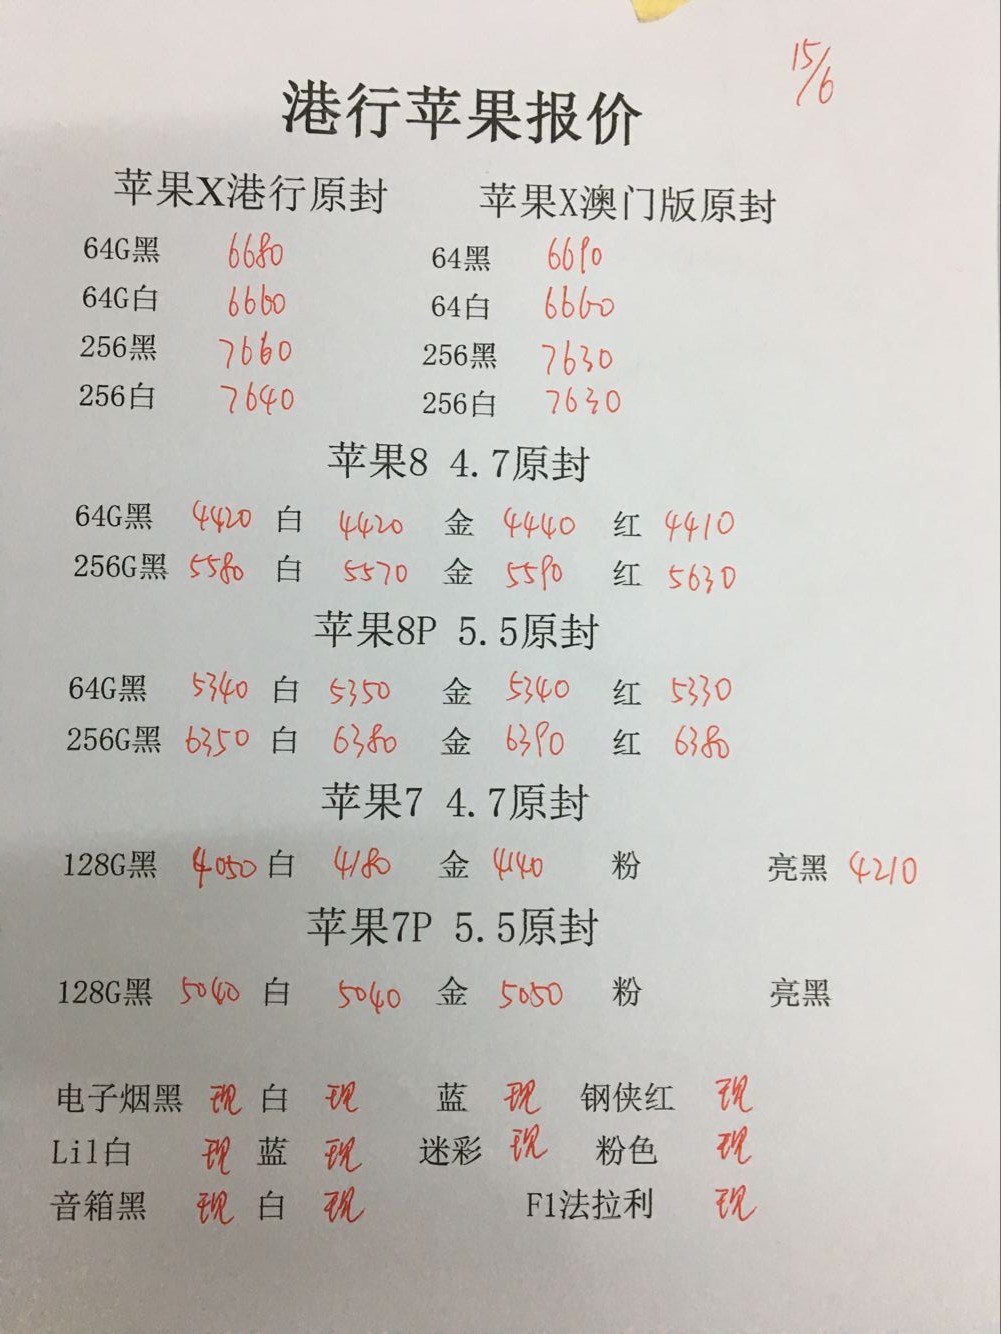 15/6
港行苹果报价
苹果X港行原封 苹果X澳门版原封
64G黑 6680 64黑 6690
64G白 6660 64白 6660
256黑 7660 256黑 7630
256白 7640 256白 7630
苹果8 4.7原封
64G黑 4420 白 4420 金 4440 红 4410
256G黑 5580 白 5570 金 5590 红 5630
苹果8P 5.5原封
64G黑 5340 白 5350 金 5340 红 5330
256G黑 6350 白 6380 金 6390 红 6380
苹果7 4.7原封
128G黑 4050 白 4180 金 4140 粉 亮黑 4210
苹果7P 5.5原封
128G黑 5040 白 5040 金 5050 粉 亮黑
电子烟黑 现 白 现 蓝 现 钢侠红 现
Lil白 现 蓝 现 迷彩 现 粉色 现
音箱黑 现 白 现 F1法拉利 现